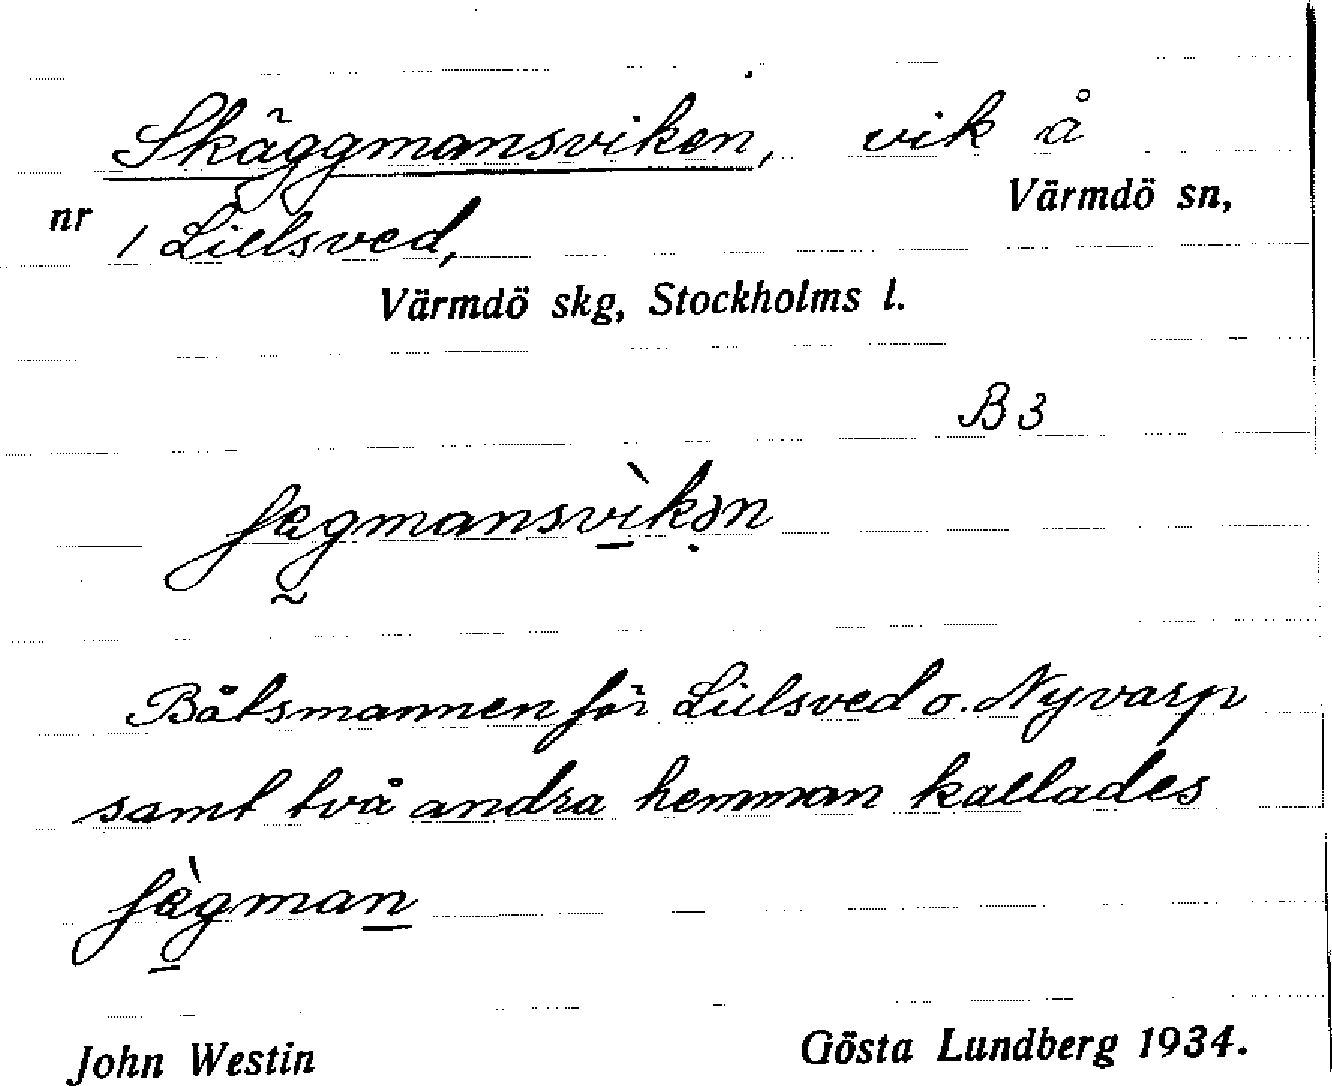 Skäggmansviken, vik å
Värmdö sn,
nr 1 Lillsved,
Värmdö skg, Stockholms l.
B3
ʃęgmansvìkən
Båtsmannen för Lillsved o. Nyvarp
samt två andra hemman kallades
ʃę̀gman
John Westin Gösta Lundberg 1934.